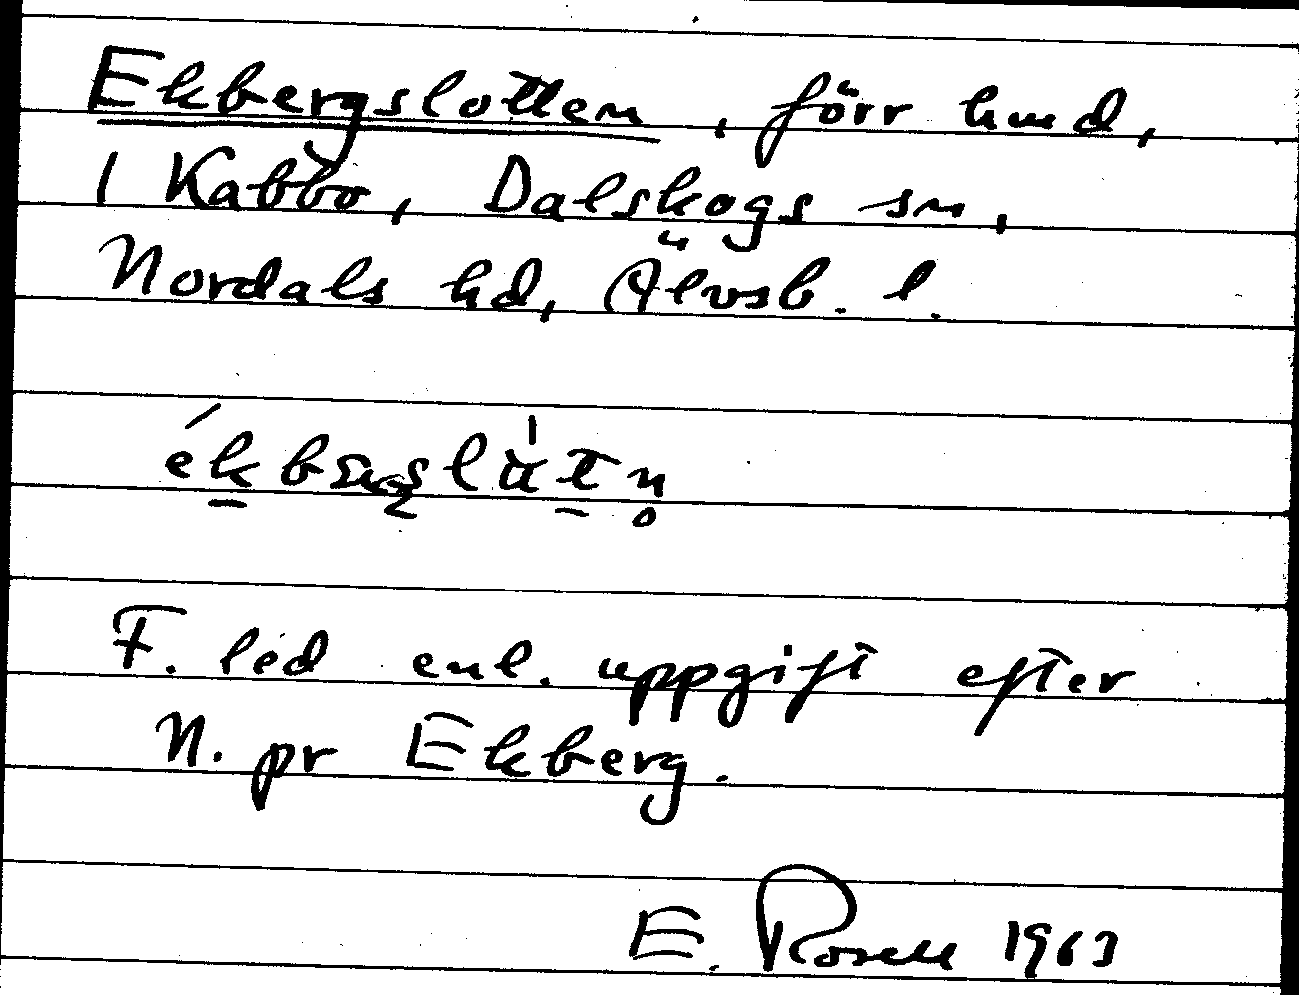 Ekbergslotten, förr hmd,
i Kabbo, Dalskogs sn,
Nordals hd, Älvsb. l.
F. led enl. uppgift efter
N. pr Ekberg.
E. Rosell 1963